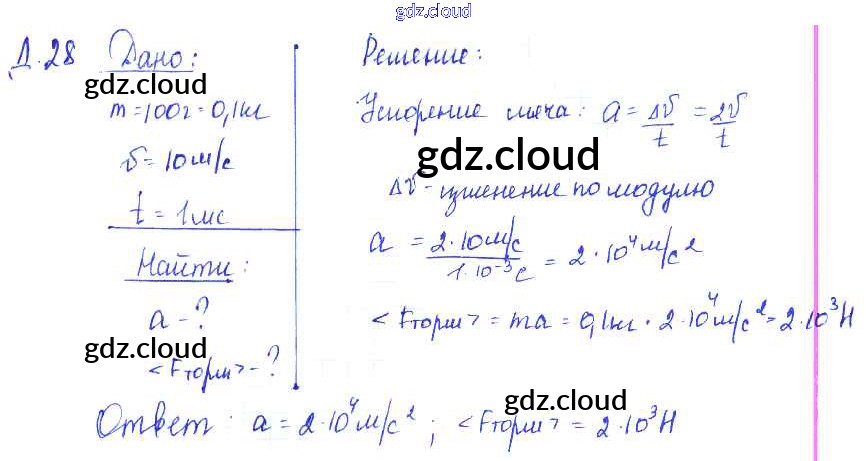 gdz.cloud
Д.28 Дано:
gdz.cloud
m=100г=0,1кг
υ=10м/с
t=1мс
Найти:
a-?
gdz.cloud
<Fторм>-?
Решение:
Ускорение мяча: a=Δυ/t=2υ/t
gdz.cloud
Δυ-изменение по модулю
a=2·10м/с/1·10⁻³с=2·10⁴м/с²
<Fторм>=ma=0,1кг·2·10⁴м/с²=2·10³Н
gdz.cloud
Ответ: a=2·10⁴м/с²; <Fторм>=2·10³Н